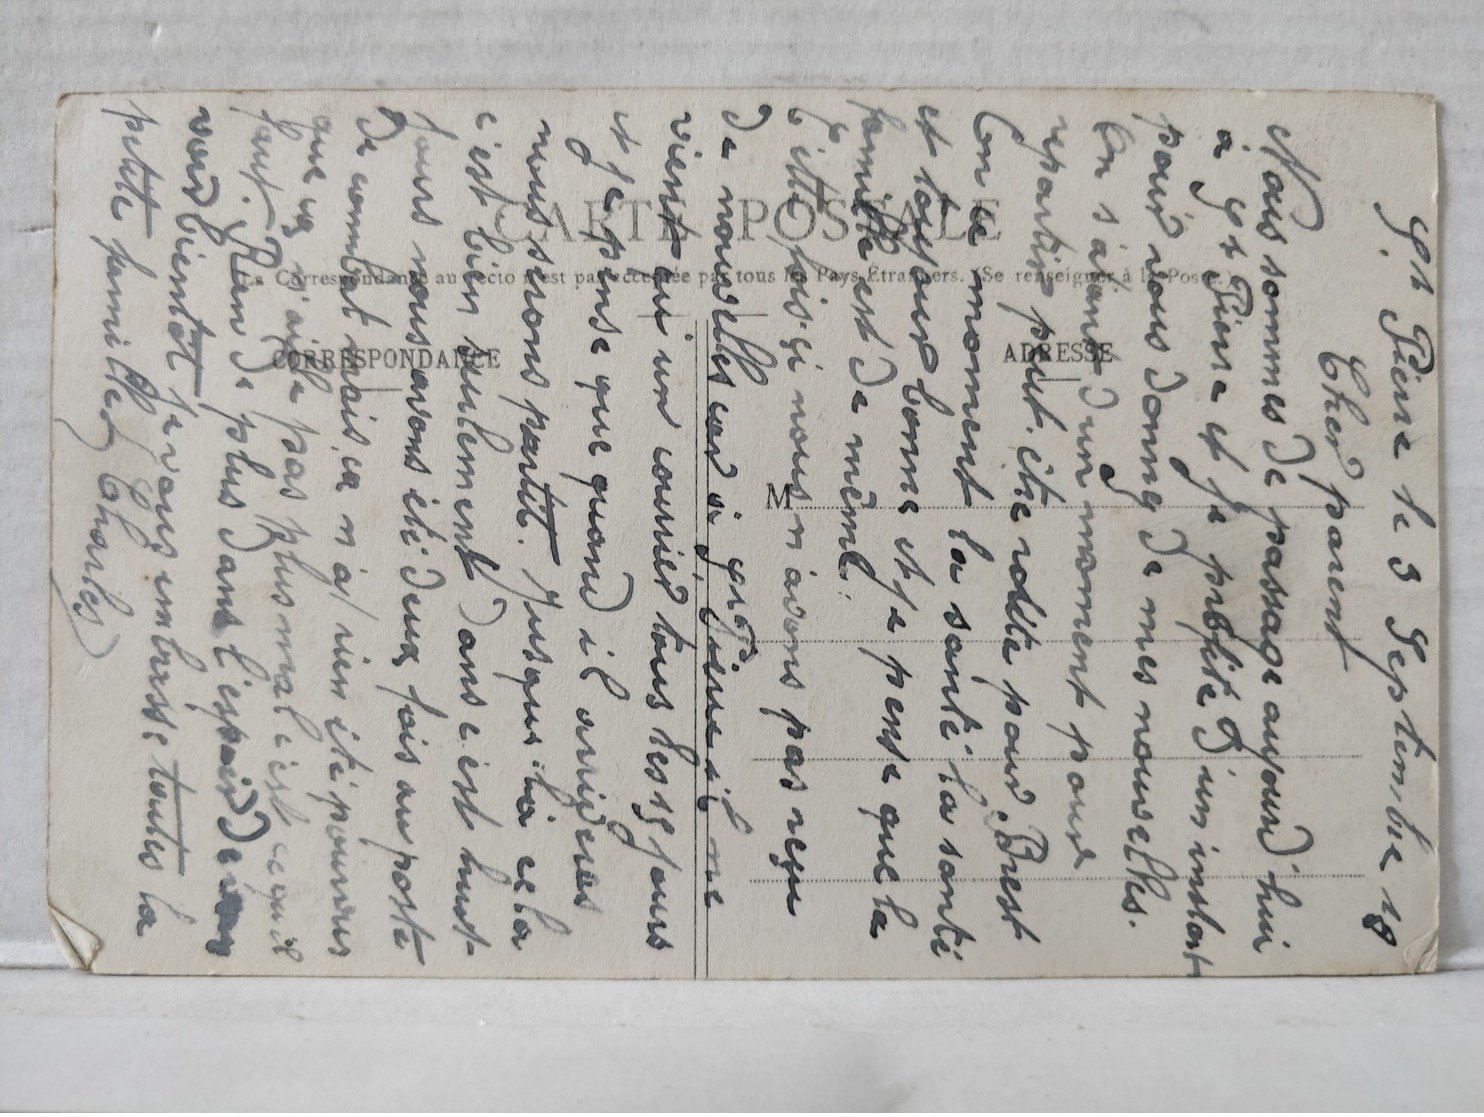 CARTE POSTALE
La Correspondance au recto n'est pas acceptée par tous les Pays Étrangers. (Se renseigner à la Poste.)
CORRESPONDANCE
ADRESSE
M
St Pierre le 3 Septembre 18
Cher parent
Nous sommes de passage aujourd'hui
a St Pierre et je profite d'un instant
pour vous donnez de mes nouvelles.
On s'avans d'un moment pour
repartir peut être route pour Brest
Con ce moment la santé la santé
et toujour bonne et je pense que la
famille est de même.
Cette fois-çi nous n'avons pas reçu
de nouvelles car à St Pierre il me
vient qu'un courrier tous les 15 jours
et je pense que quand il arriveras
nous serons partit. Jusqui là cela
c'est bien seulment dans est huit
jours nous avons été deux fois au poste
de combat mais ça n'a rien été pourvus
que ça n'aille pas plus mal c'est cequil
faut. Rien de plus dans l'espoir de
voir bientôt je vous embrasse toutes la
petite famille Charles